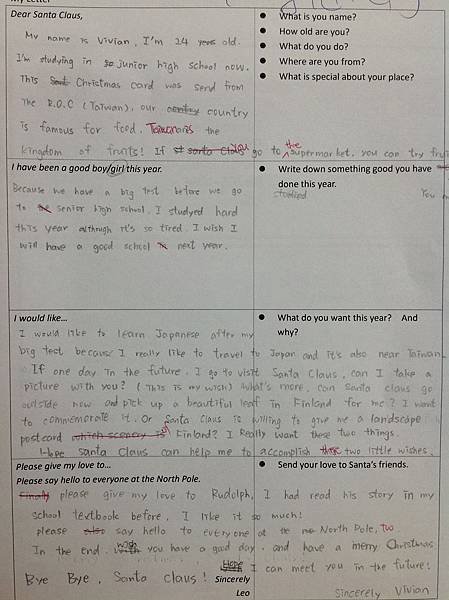 My Letter
Dear Santa Claus,
My name is Vivian, I'm 14 years old.
I'm studying in junior high school now.
This Christmas card was send from
The R.O.C (Taiwan), our country
is famous for food. Taiwan is the
kingdom of fruits! If you go to the supermarket, you can try
What is you name?
How old are you?
What do you do?
Where are you from?
What is special about your place?
I have been a good boy/girl this year.
Because we have a big test before we go
to senior high school. I studyed hard
this year although it's so tired. I wish I
will have a good school next year.
Write down something good you have
done this year.
studied
You
I would like...
I would like to learn Japanese after my
big test because I really like to travel to Japan and it's also near Taiwan.
If one day in the future, I go to visit Santa Claus, can I take a
picture with you? (This is my wish) What's more, can Santa claus go
outside now and pick up a beautiful leaf in Finland for me? I want
to commemorate it. Or Santa Claus is willing to give me a landscape
postcard which scenery is of Finland? I Really want these two things.
Hope Santa Claus can help me to accomplish two little wishes.
What do you want this year? And
why?
Please give my love to...
Please say hello to everyone at the North Pole.
Finally please give my love to Rudolph, I had read his story in my
school textbook before, I like it so much!
please also say hello to everyone at the North Pole, too
In the end, wish you have a good day, and have a merry Christmas.
Hope I can meet you in the future!
Bye Bye, Santa claus!
Sincerely
Leo
Sincerely Vivian
Send your love to Santa's friends.